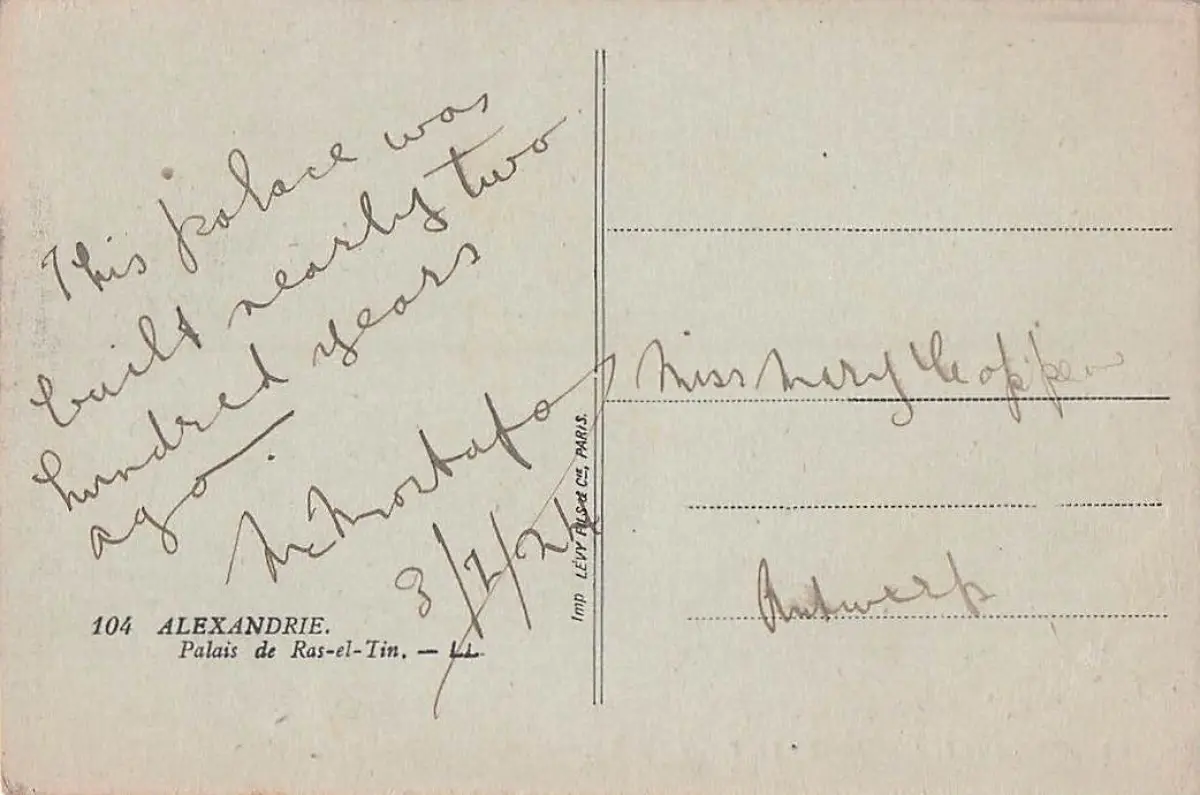 This palace was
built nearly two
hundred years
ago.
M. Mostafa
3/7/24
104 ALEXANDRIE.
Palais de Ras-el-Tin. — LL
Imp LÉVY FILS & Cie, PARIS.
Miss Mary
Antwerp